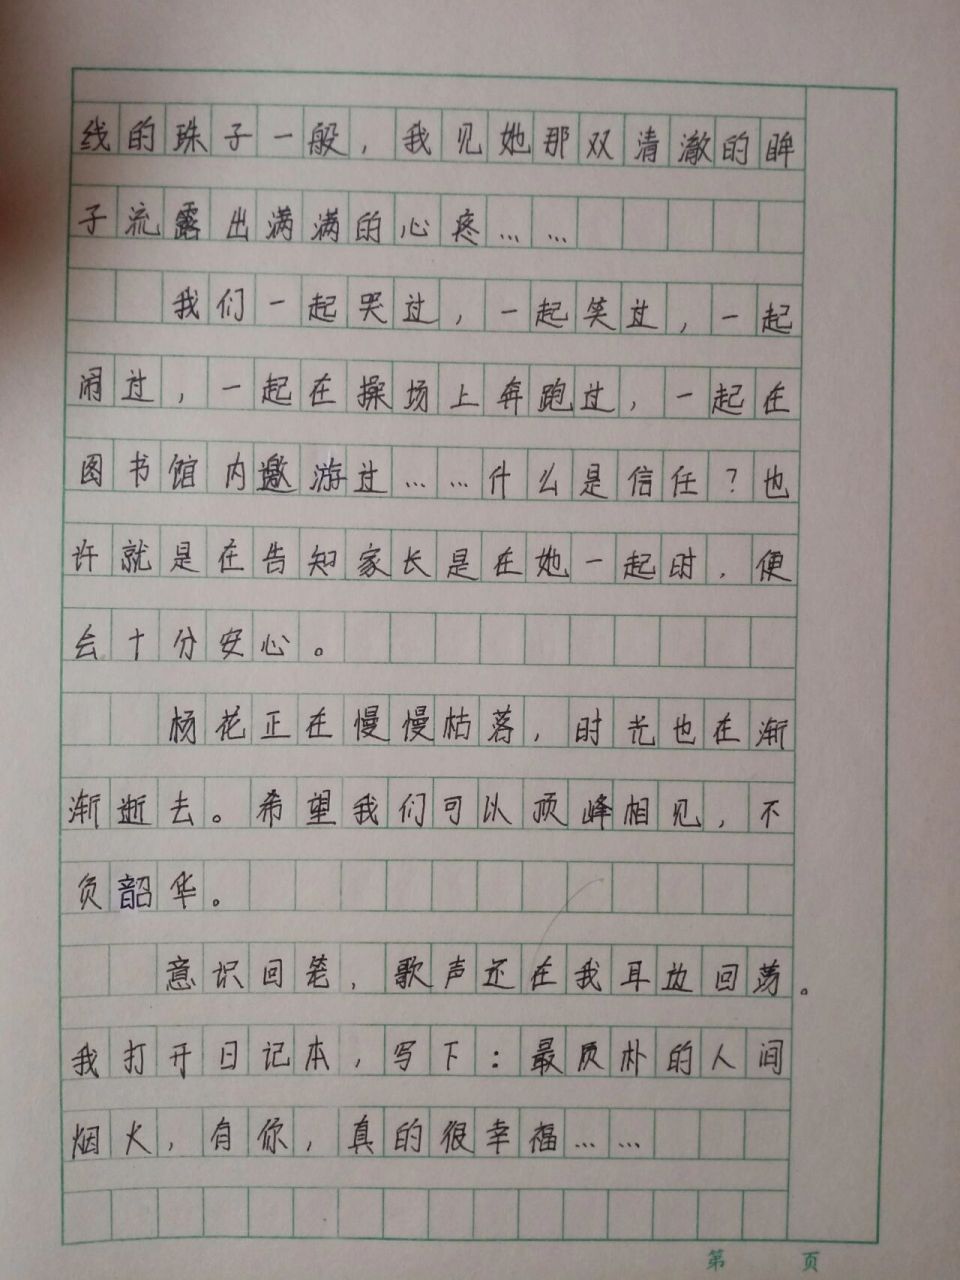 线的珠子一般，我见她那双清澈的眸
子流露出满满的心疼……
我们一起哭过，一起笑过，一起
闹过，一起在操场上奔跑过，一起在
图书馆内邀游过……什么是信任？也
许就是在告知家长是在她一起时，便
会十分安心。
杨花正在慢慢枯落，时光也在渐
渐逝去。希望我们可以顶峰相见，不
负韶华。
意识回笼，歌声还在我耳边回荡。
我打开日记本，写下：最质朴的人间
烟火，有你，真的很幸福……
第 页